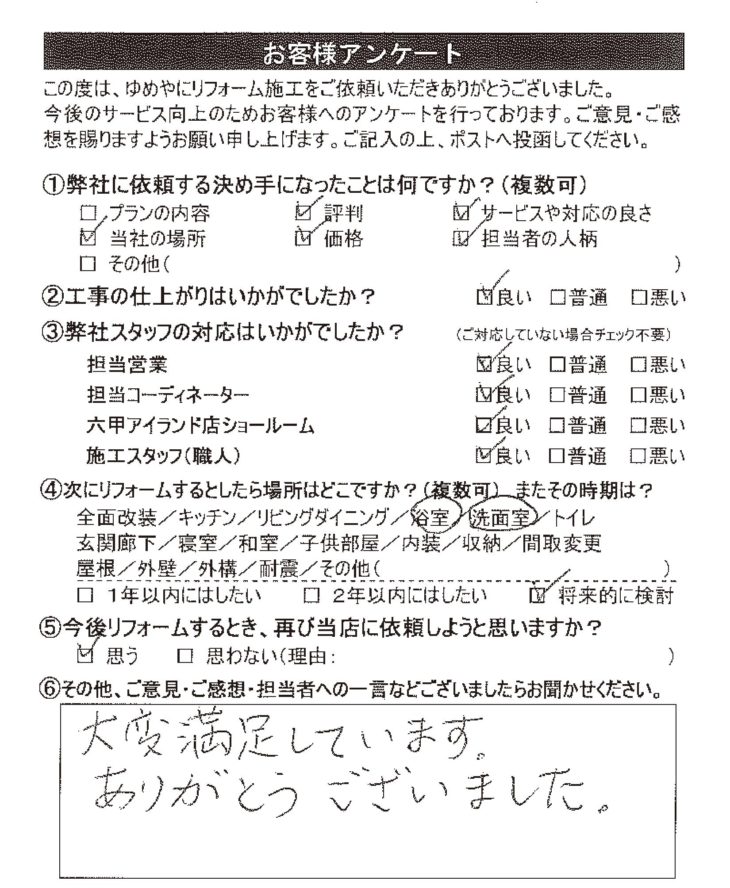 お客様アンケート
この度は、ゆめやにリフォーム施工をご依頼いただきありがとうございました。
今後のサービス向上のためお客様へのアンケートを行っております。ご意見・ご感
想を賜りますようお願い申し上げます。ご記入の上、ポストへ投函してください。
①弊社に依頼する決め手になったことは何ですか？(複数可)
□ プランの内容 ☑ 評判 ☑ サービスや対応の良さ
☑ 当社の場所 ☑ 価格 ☑ 担当者の人柄
□ その他( )
②工事の仕上がりはいかがでしたか？ ☑良い □普通 □悪い
③弊社スタッフの対応はいかがでしたか？ (ご対応していない場合チェック不要)
担当営業 ☑良い □普通 □悪い
担当コーディネーター ☑良い □普通 □悪い
六甲アイランド店ショールーム ☑良い □普通 □悪い
施工スタッフ(職人) ☑良い □普通 □悪い
④次にリフォームするとしたら場所はどこですか？(複数可) またその時期は？
全面改装／キッチン／リビングダイニング／浴室／洗面室／トイレ
玄関廊下／寝室／和室／子供部屋／内装／収納／間取変更
屋根／外壁／外構／耐震／その他( )
□ 1年以内にはしたい □ 2年以内にはしたい ☑ 将来的に検討
⑤今後リフォームするとき、再び当店に依頼しようと思いますか？
☑ 思う □ 思わない(理由: )
⑥その他、ご意見・ご感想・担当者への一言などございましたらお聞かせください。
大変満足しています。
ありがとうございました。